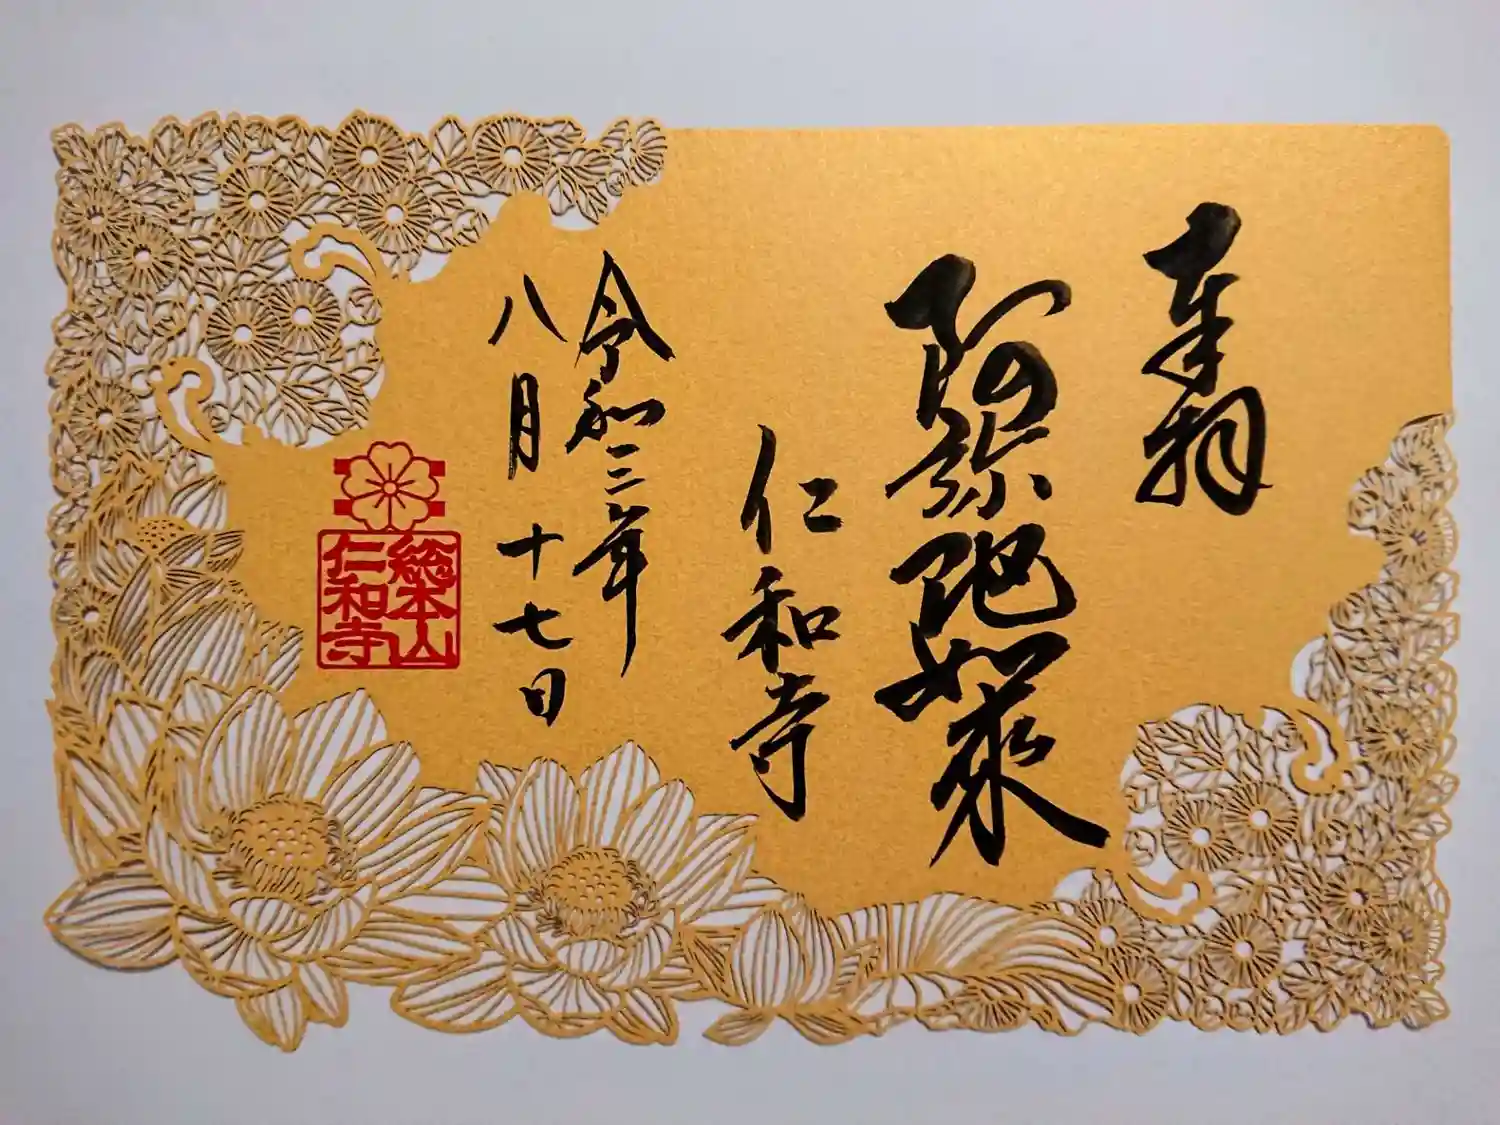 奉拝
阿弥陀如来
仁和寺
令和三年
八月十七日
総本山
仁和寺